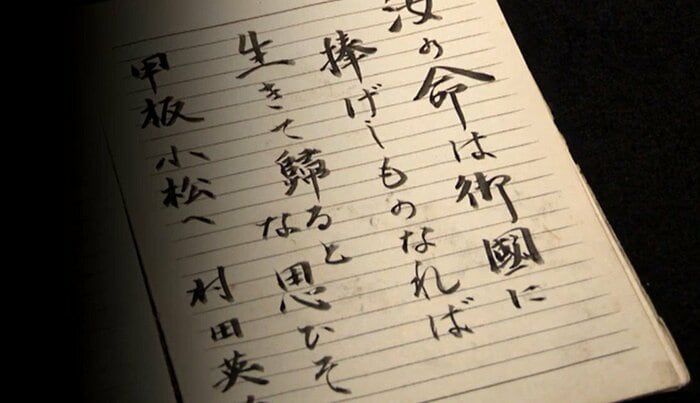 汝の命は御國に
捧げしものなれば
生きて歸るとな思ひそ
甲板小松へ 村田英